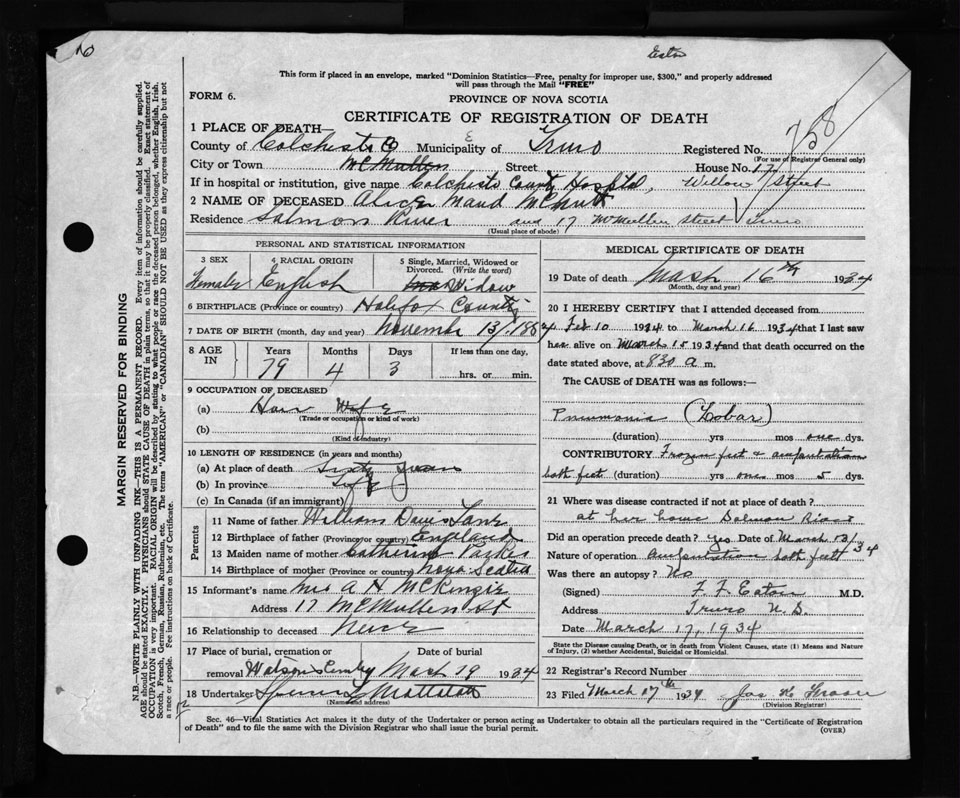 Eaton
This form if placed in an envelope, marked "Dominion Statistics—Free, penalty for improper use, $300," and properly addressed
will pass through the Mail "FREE"
FORM 6.
PROVINCE OF NOVA SCOTIA
CERTIFICATE OF REGISTRATION OF DEATH
758
1 PLACE OF DEATH
County of Municipality of Truro Registered No.
(For use of Registrar General only)
City or Town McMullen Street House No. 17
If in hospital or institution, give name Colchester County Hospital, Willow Street
2 NAME OF DECEASED Alice Maud McNutt
Residence Salmon River and 17 McMullen Street Truro
(Usual place of abode)
PERSONAL AND STATISTICAL INFORMATION
3 SEX 4 RACIAL ORIGIN 5 Single, Married, Widowed or Divorced. (Write the word)
Female English Widow
6 BIRTHPLACE (Province or country) Halifax County
7 DATE OF BIRTH (month, day and year) November 13/
8 AGE IN Years Months Days If less than one day,
79 4 3 hrs. or min.
9 OCCUPATION OF DECEASED
(a) House Wife
(Trade or occupation or kind of work)
(b)
(Kind of industry)
10 LENGTH OF RESIDENCE (in years and months)
(a) At place of death Sixty Years
(b) In province Life
(c) In Canada (if an immigrant)
Parents
11 Name of father William Davis
12 Birthplace of father (Province or country) England
13 Maiden name of mother Catherine Parker
14 Birthplace of mother (Province or country) Nova Scotia
15 Informant's name Mrs A H McKenzie
Address 17 McMullen St
16 Relationship to deceased Niece
17 Place of burial, cremation or Date of burial
removal March 19 1934
18 Undertaker
(Name and address)
MEDICAL CERTIFICATE OF DEATH
19 Date of death March 16th 1934
(Month, day and year)
20 I HEREBY CERTIFY that I attended deceased from
Feb 10 1934 to March 16 1934 that I last saw
her alive on March 15 1934 and that death occurred on the
date stated above, at 830 a m.
The CAUSE OF DEATH was as follows:
Pneumonia (Lobar)
(duration) yrs mos one dys.
CONTRIBUTORY Frozen feet & amputation
both feet (duration) yrs one mos 5 dys.
21 Where was disease contracted if not at place of death?
at her home Salmon River
Did an operation precede death? Yes Date of March 13/34
Nature of operation Amputation both feet
Was there an autopsy? No
(Signed) F. F. Eaton M.D.
Address Truro N.S.
Date March 17, 1934
State the Disease causing Death, or in death from Violent Causes, state (1) Means and Nature
of Injury, (2) whether Accidental, Suicidal or Homicidal.
22 Registrar's Record Number
23 Filed March 17th 1934
(Division Registrar)
Sec. 46—Vital Statistics Act makes it the duty of the Undertaker or person acting as Undertaker to obtain all the particulars required in the "Certificate of Registration
of Death" and to file the same with the Division Registrar who shall issue the burial permit.
(OVER)
MARGIN RESERVED FOR BINDING
N.B.—WRITE PLAINLY WITH UNFADING INK—THIS IS A PERMANENT RECORD. Every item of information should be carefully supplied.
AGE should be stated EXACTLY. PHYSICIANS should STATE CAUSE OF DEATH in plain terms, so that it may be properly classified. Exact statement of
OCCUPATION is very important. RACIAL ORIGIN will be described by stating to what people or race the deceased person belonged, whether English, Irish,
Scotch, French, German, Russian, Ruthenian, etc. The terms "AMERICAN" or "CANADIAN" SHOULD NOT BE USED as they express citizenship but not
a race or people. Fee instructions on back of Certificate.